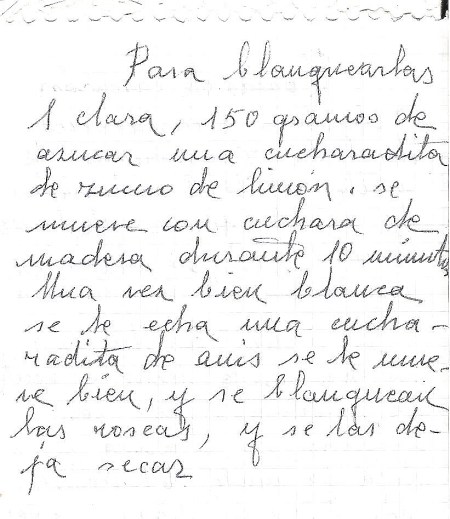 Para blanquearlas
1 clara, 150 gramos de
azucar una cucharadita
de zumo de limón. se
mueve con cuchara de
madera durante 10 minutos
Una vez bien blanca
se le echa una cucha-
radita de anis se le mue-
ve bien, y se blanquean
las roscas, y se las de-
ja secar